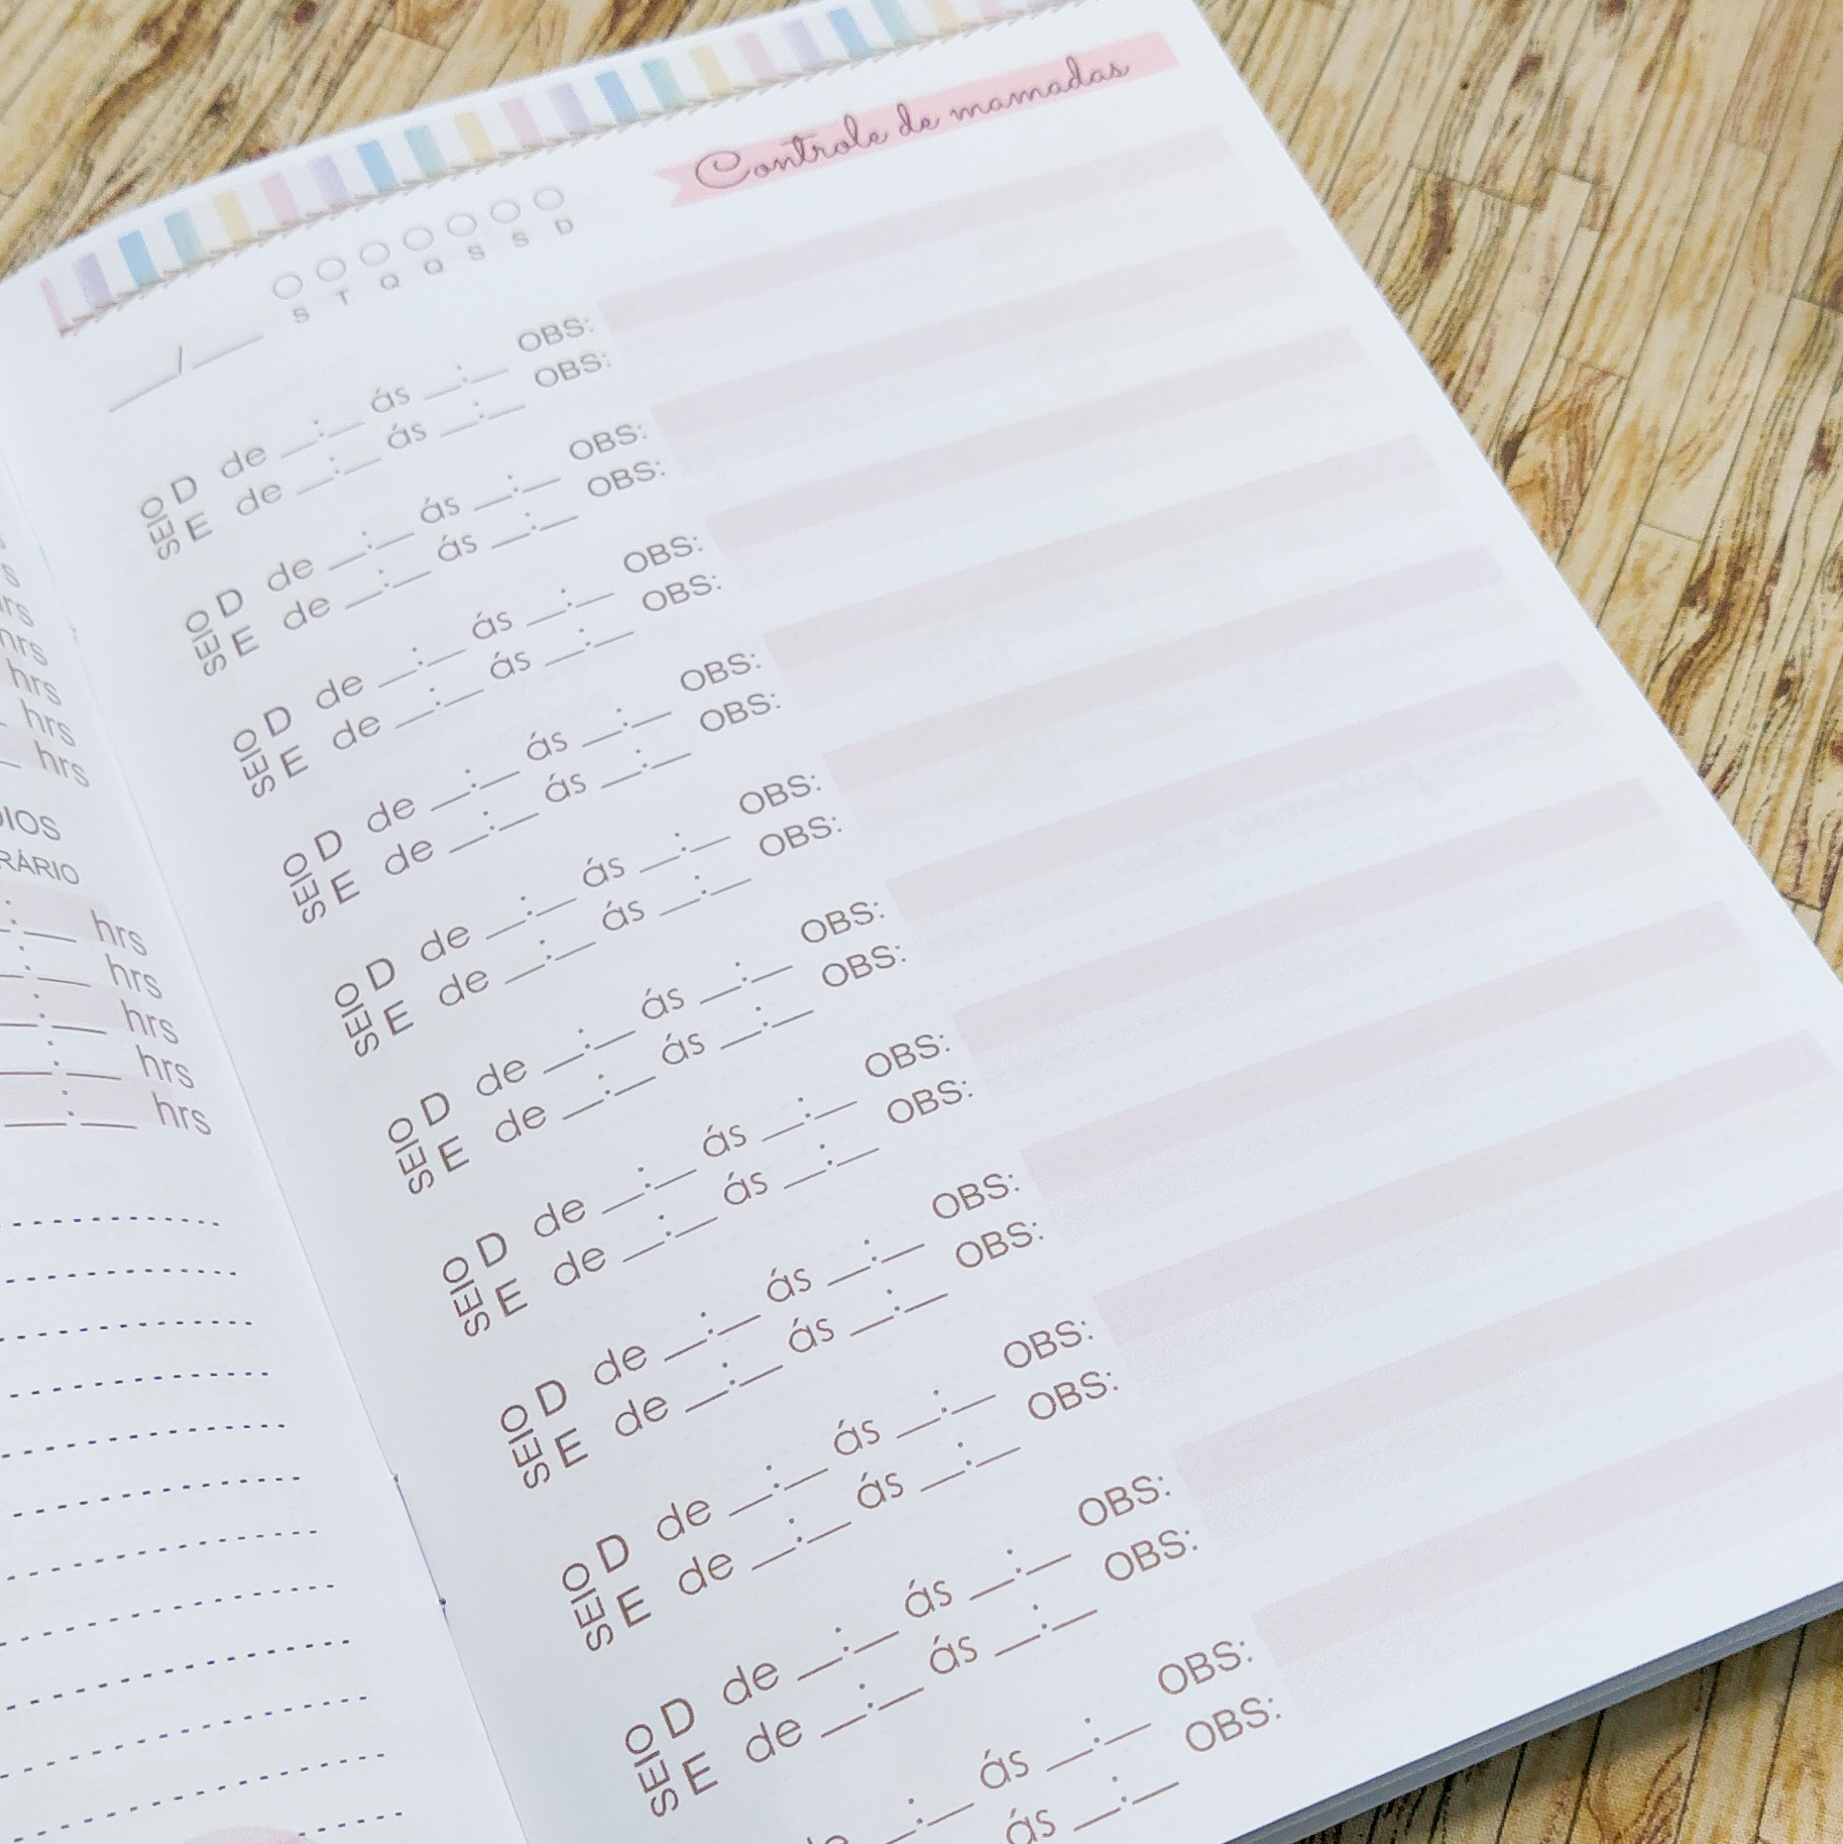 hrs
hrs
hrs
hrs
RÁRIO
__:__ hrs
__:__ hrs
__:__ hrs
__:__ hrs
__:__ hrs
Controle de mamadas
S T Q Q S S D
___/___
SEIO
D de __:__ ás __:__ OBS:
E de __:__ ás __:__ OBS:
SEIO
D de __:__ ás __:__ OBS:
E de __:__ ás __:__ OBS:
SEIO
D de __:__ ás __:__ OBS:
E de __:__ ás __:__ OBS:
SEIO
D de __:__ ás __:__ OBS:
E de __:__ ás __:__ OBS:
SEIO
D de __:__ ás __:__ OBS:
E de __:__ ás __:__ OBS:
SEIO
D de __:__ ás __:__ OBS:
E de __:__ ás __:__ OBS:
SEIO
D de __:__ ás __:__ OBS:
E de __:__ ás __:__ OBS:
SEIO
D de __:__ ás __:__ OBS:
E de __:__ ás __:__ OBS:
SEIO
D de __:__ ás __:__ OBS:
E de __:__ ás __:__ OBS:
SEIO
D de __:__ ás __:__ OBS:
E de __:__ ás __:__ OBS:
__:__ ás __:__ OBS:
ás __:__ OBS: